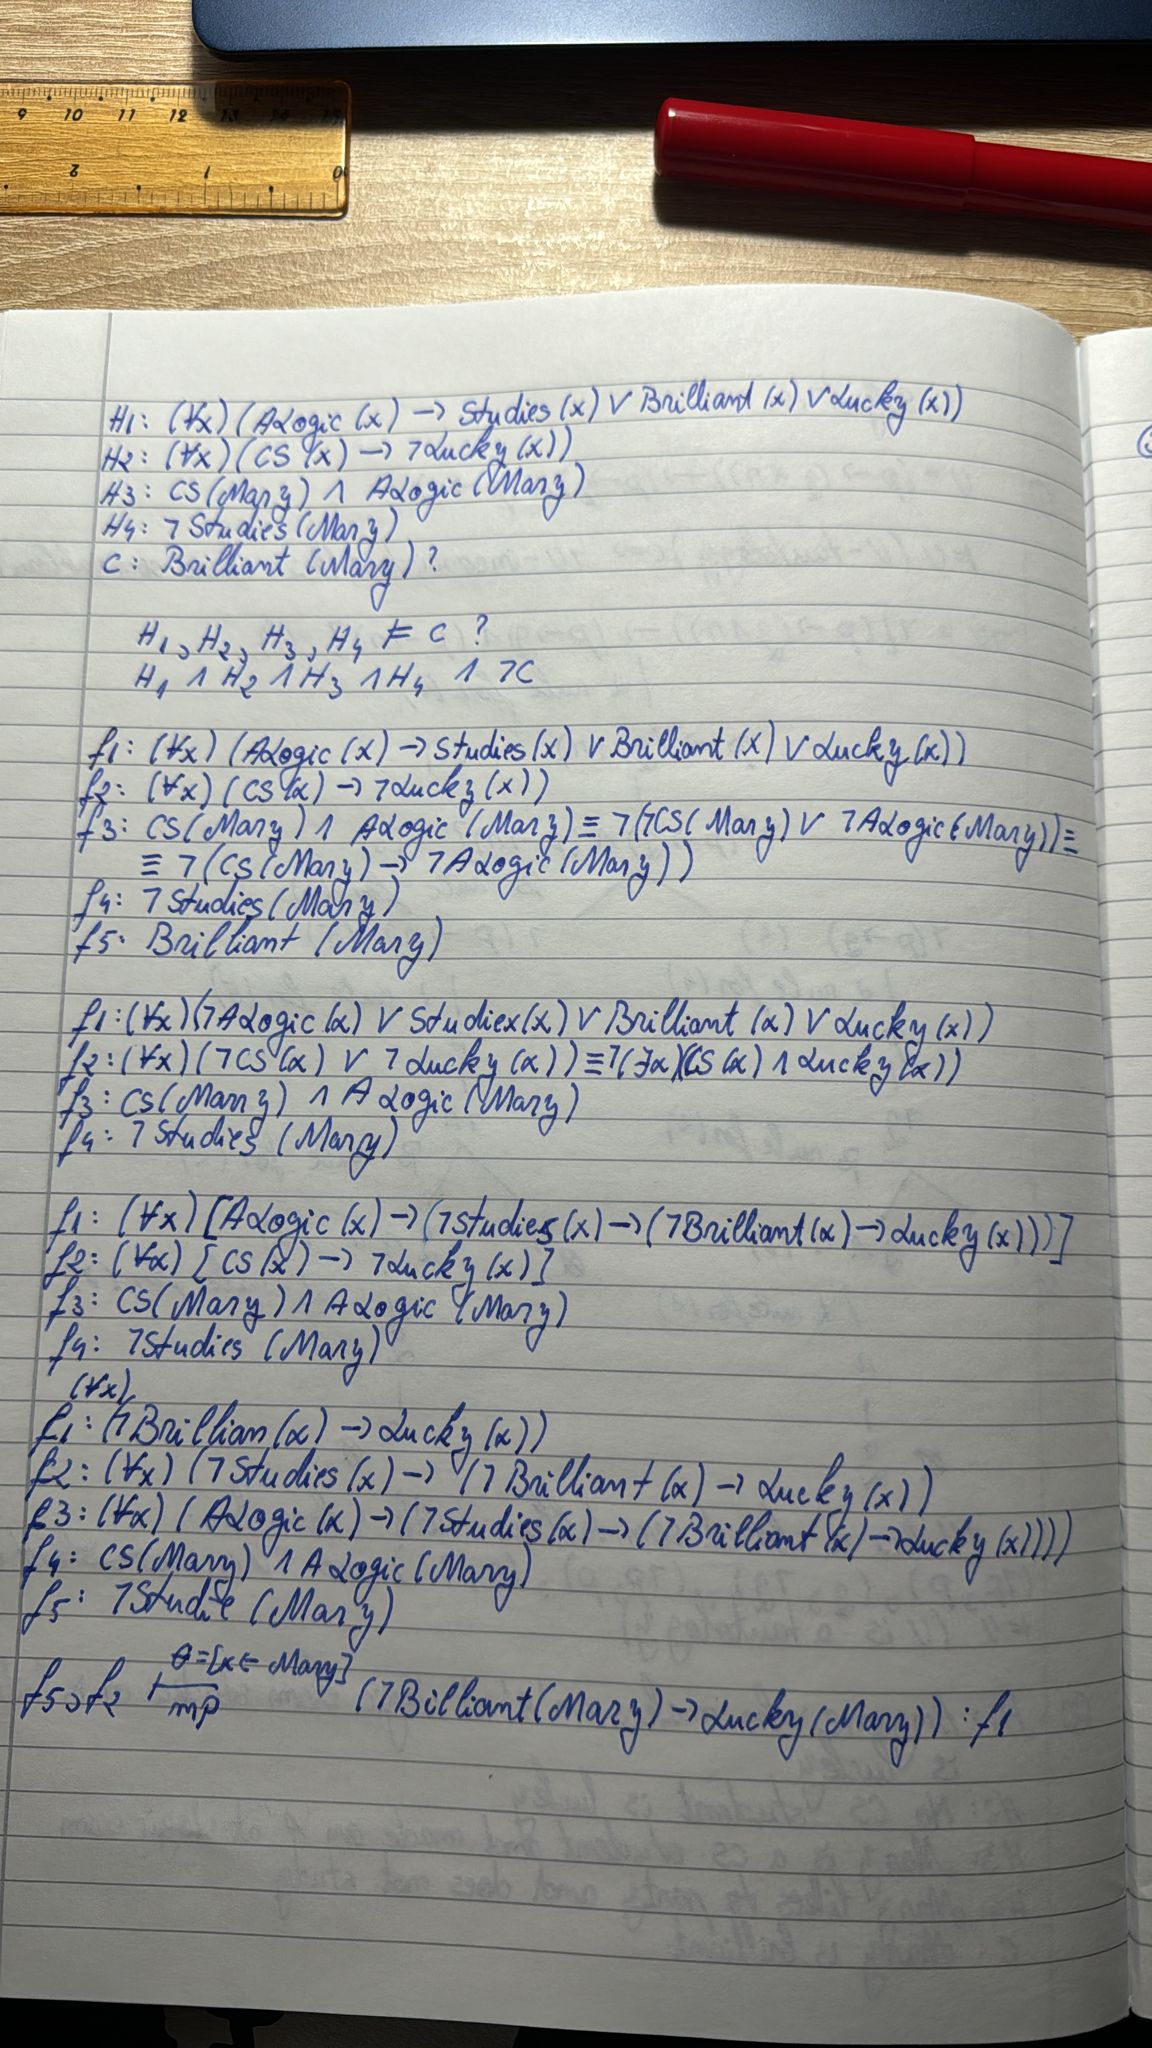 9 10 11 12 13 14 15
2 1 0
H1: (∀x) (ALogic (x) → Studies (x) ∨ Brilliant (x) ∨ Lucky (x))
H2: (∀x) (CS (x) → ¬Lucky (x))
H3: CS (Mary) ∧ ALogic (Mary)
H4: ¬Studies (Mary)
C: Brilliant (Mary) ?
H1, H2, H3, H4 ⊨ C ?
H1 ∧ H2 ∧ H3 ∧ H4 ∧ ¬C
f1: (∀x) (ALogic (x) → Studies (x) ∨ Brilliant (x) ∨ Lucky (x))
f2: (∀x) (CS (x) → ¬Lucky (x))
f3: CS (Mary) ∧ ALogic (Mary) ≡ ¬(¬CS (Mary) ∨ ¬ALogic (Mary)) ≡
≡ ¬(CS (Mary) → ¬ALogic (Mary))
f4: ¬Studies (Mary)
f5: Brilliant (Mary)
f1: (∀x) (¬ALogic (x) ∨ Studiex (x) ∨ Brilliant (x) ∨ Lucky (x))
f2: (∀x) (¬CS (x) ∨ ¬Lucky (x)) ≡ ¬(∃x) (CS (x) ∧ Lucky (x))
f3: CS (Mary) ∧ ALogic (Mary)
f4: ¬Studies (Mary)
f1: (∀x) [ALogic (x) → (¬Studies (x) → (¬Brilliant (x) → Lucky (x)))]
f2: (∀x) [CS (x) → ¬Lucky (x)]
f3: CS (Mary) ∧ ALogic (Mary)
f4: ¬Studies (Mary)
(∀x)
f1: (¬Brillian (x) → Lucky (x))
f2: (∀x) (¬Studies (x) → (¬Brilliant (x) → Lucky (x))
f3: (∀x) (ALogic (x) → (¬Studies (x) → (¬Brilliant (x) → Lucky (x))))
f4: CS (Mary) ∧ ALogic (Mary)
f5: ¬Studie (Mary)
θ = [x ← Mary]
f5, f2 ⊢ mp (¬Billiant (Mary) → Lucky (Mary)) : f1